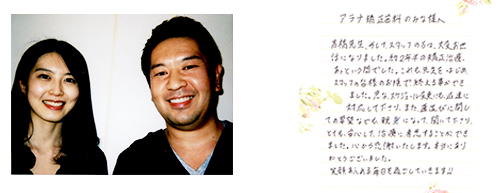 アラナ矯正歯科のみな様へ
高橋先生、そして、スタッフの方々、大変お世
話になりました。約2年半の矯正治療、
あっという間でした。これも先生をはじめ
スタッフの皆様のお陰で終える事ができ
ました。急な、スケジュール変更にも、迅速に
対応して下さり、また、歯並びに関し
ての希望なども、親身になって、聞いて下さり、
とても、安心して、治療に専念することができ
ました。心から感謝いたします。本当にあり
がとうございました。
笑顔あふれる毎日を過ごしていきます!!